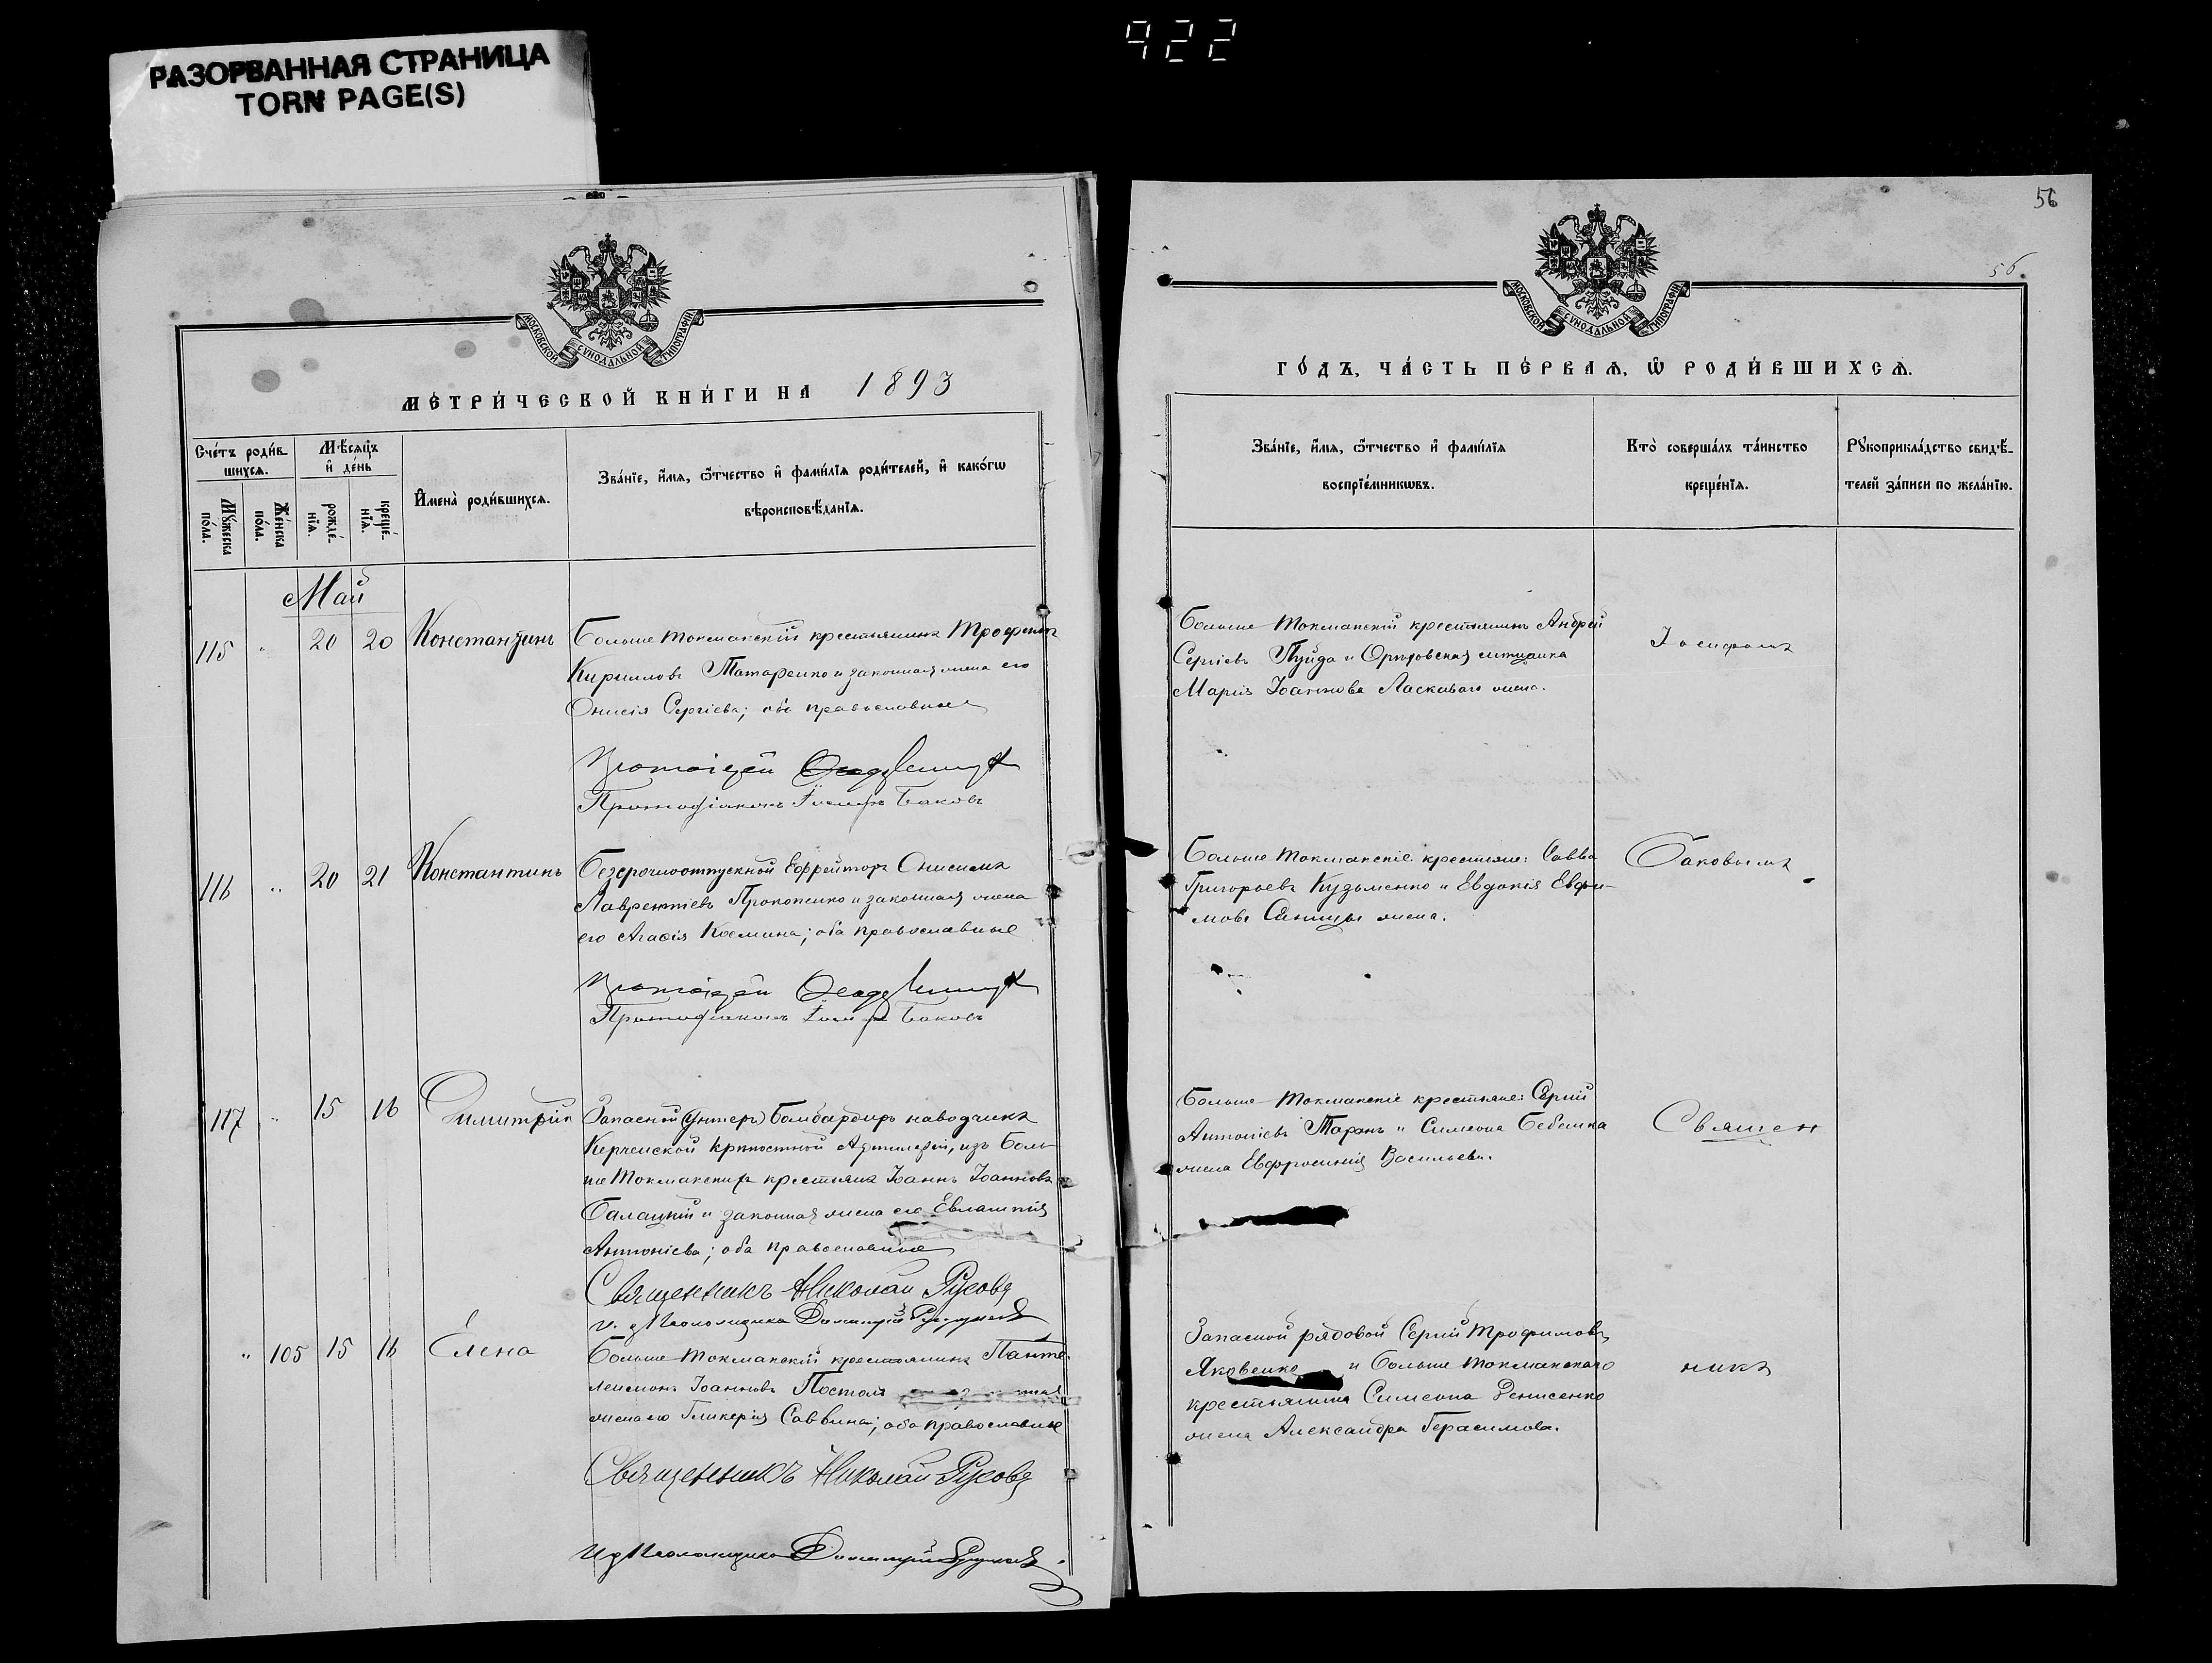 922
РАЗОРВАННАЯ СТРАНИЦА
TORN PAGE(S)
МОСКОВСКОЙ СѴНОДАЛЬНОЙ ТИПОГРАФІИ
МЕТРИ́ЧЕСКОЙ КНИ́ГИ НА 1893
Сче́тъ роди́в-
шихсѧ.
Мѣ́сѧцъ
и҆ де́нь
И҆мена̀ роди́вшихсѧ.
Зва́нїе, и҆́мѧ, ѻ҆́тчество и҆ фами́лїѧ роди́телей, и҆ како́гѡ
вѣроисповѣ́данїѧ.
Мꙋ́жеска
по́ла.
Же́нска
по́ла.
рожде́-
нїѧ.
креще́-
нїѧ.
Май
115 " 20 20 Константинъ Больше Токмакскій крестьянинъ Трофимъ
Кирилловъ Татаренко и законная жена его
Онисія Сергіева; оба православные
Протоіерей
Протодіаконъ Іосифъ Баковъ
116 " 20 21 Константинъ Безсрочноотпускной Ефрейторъ Онисимъ
Лаврентіевъ Прокопенко и законная жена
его Агаѳія Космина; оба православные
Протоіерей
Протодіаконъ Іосифъ Баковъ
117 " 15 16 Димитрій Запасной (унтеръ) Бомбардиръ наводчикъ
Керченской крѣпостной Артилеріи, изъ Боль-
ше Токмакскихъ крестьянъ Іоаннъ Іоанновъ
Балацкій и законная жена его Евлампія
Антоніева; оба православные
Священникъ Николай Русовъ
и. д. Псаломщика Димитрій
" 105 15 16 Елена Больше Токмакскій крестьянинъ Панте-
леимонъ Іоанновъ Постолъ
жена его Гликерія Саввина; оба православные
Священникъ Николай Русовъ
И д Псаломщика Димитрій
56
56.
МОСКОВСКОЙ СѴНОДАЛЬНОЙ ТИПОГРАФІИ
ГО́ДЪ, ЧА́СТЬ ПЕ́РВАѦ, Ѡ҆ РОДИ́ВШИХСѦ.
Зва́нїе, и҆́мѧ, ѻ҆́тчество и҆ фами́лїѧ
воспрїе́мникѡвъ.
Кто̀ соверша́лъ та́инство
креще́нїѧ.
Рꙋкоприкла́дство свидѣ́-
телей за́писи по жела́нїю.
Больше Токмакскій крестьянинъ Андрей
Сергіевъ Пуйда и Орѣховская мѣщанка
Марія Іоаннова Ласкаваго жена.
Іосифомъ
Больше Токмакскіе крестьяне: Савва
Григорьевъ Кузьменко и Евдокія Евфи-
мова Синицы жена.
Баковымъ
Больше Токмакскіе крестьяне: Сергій
Антоніевъ Таранъ и Симеона Бебешка
жена Евфросинія Васильева.
Священ
Запасной рядовой Сергій Трофимовъ
Яковенко и Больше Токмакскаго
крестьянина Симеона Денисенко
жена Александра Герасимова.
никъ